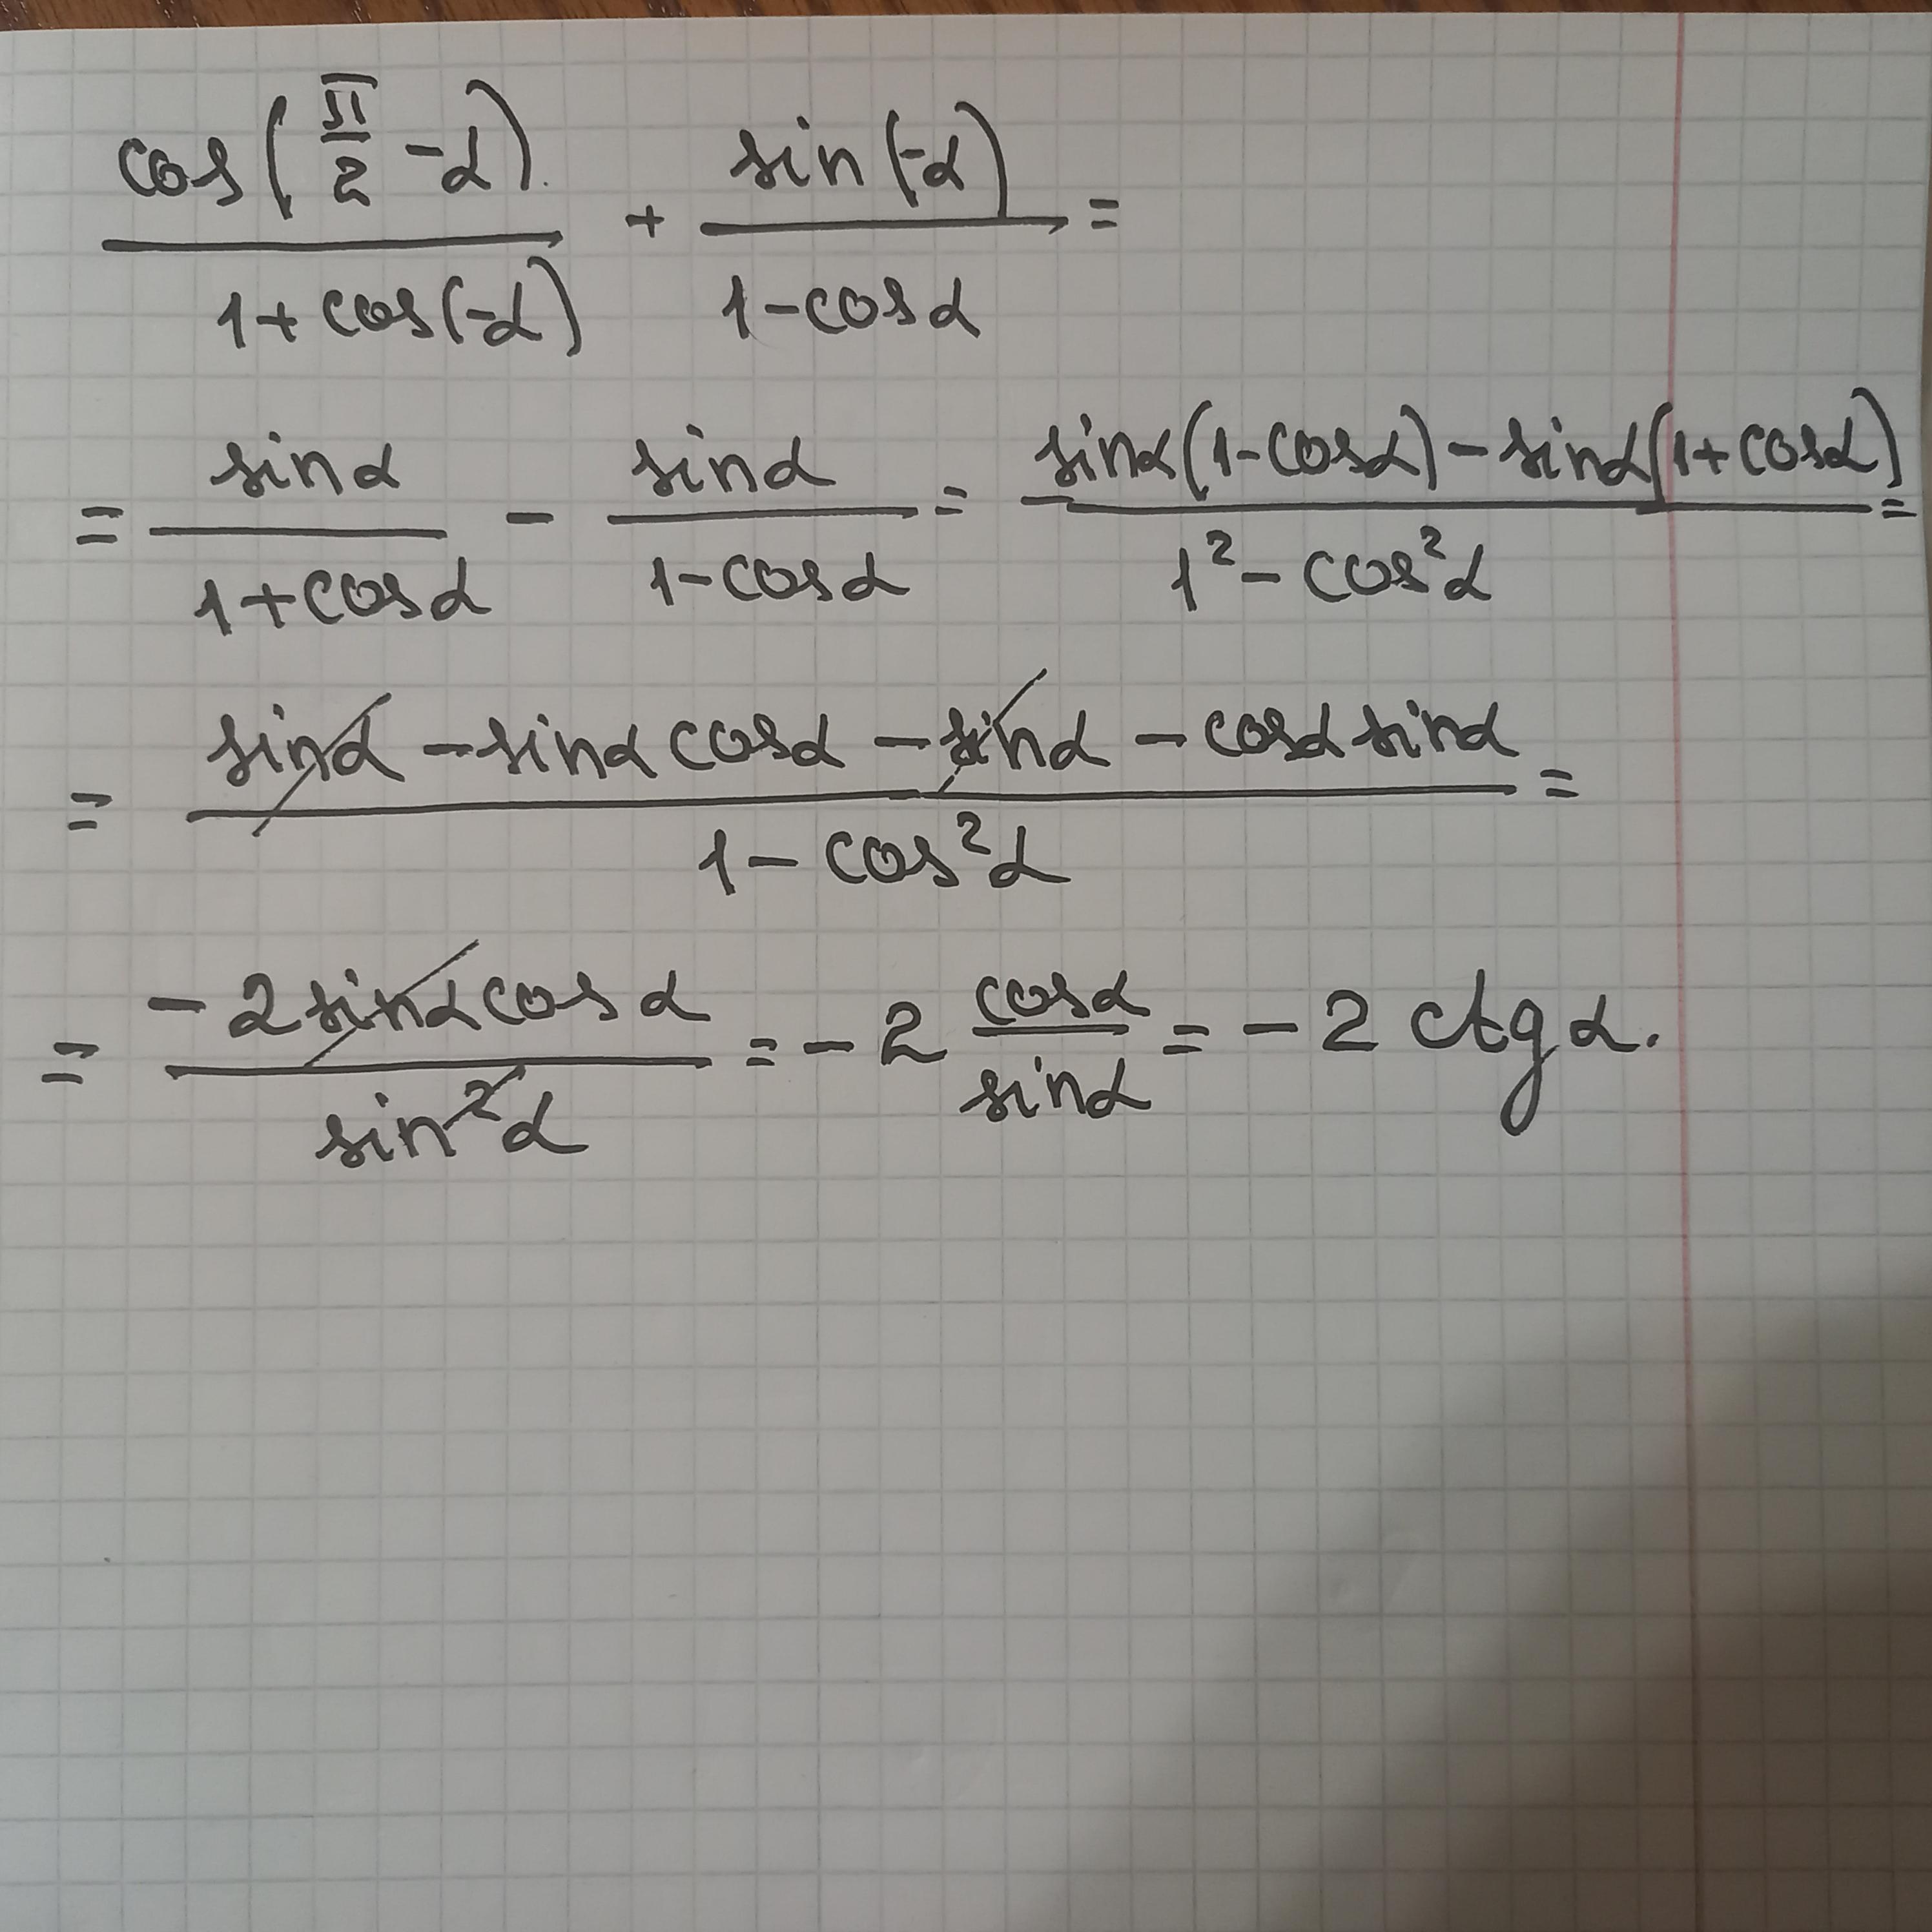 cos(π/2 - α)/(1 + cos(-α)) + sin(-α)/(1 - cosα) =
= sinα/(1 + cosα) - sinα/(1 - cosα) = (sinα(1 - cosα) - sinα(1 + cosα))/(1² - cos²α) =
= (sinα - sinα cosα - sinα - cosα sinα)/(1 - cos²α) =
= (-2 sinα cosα)/(sin²α) = -2 cosα/sinα = -2 ctg α.